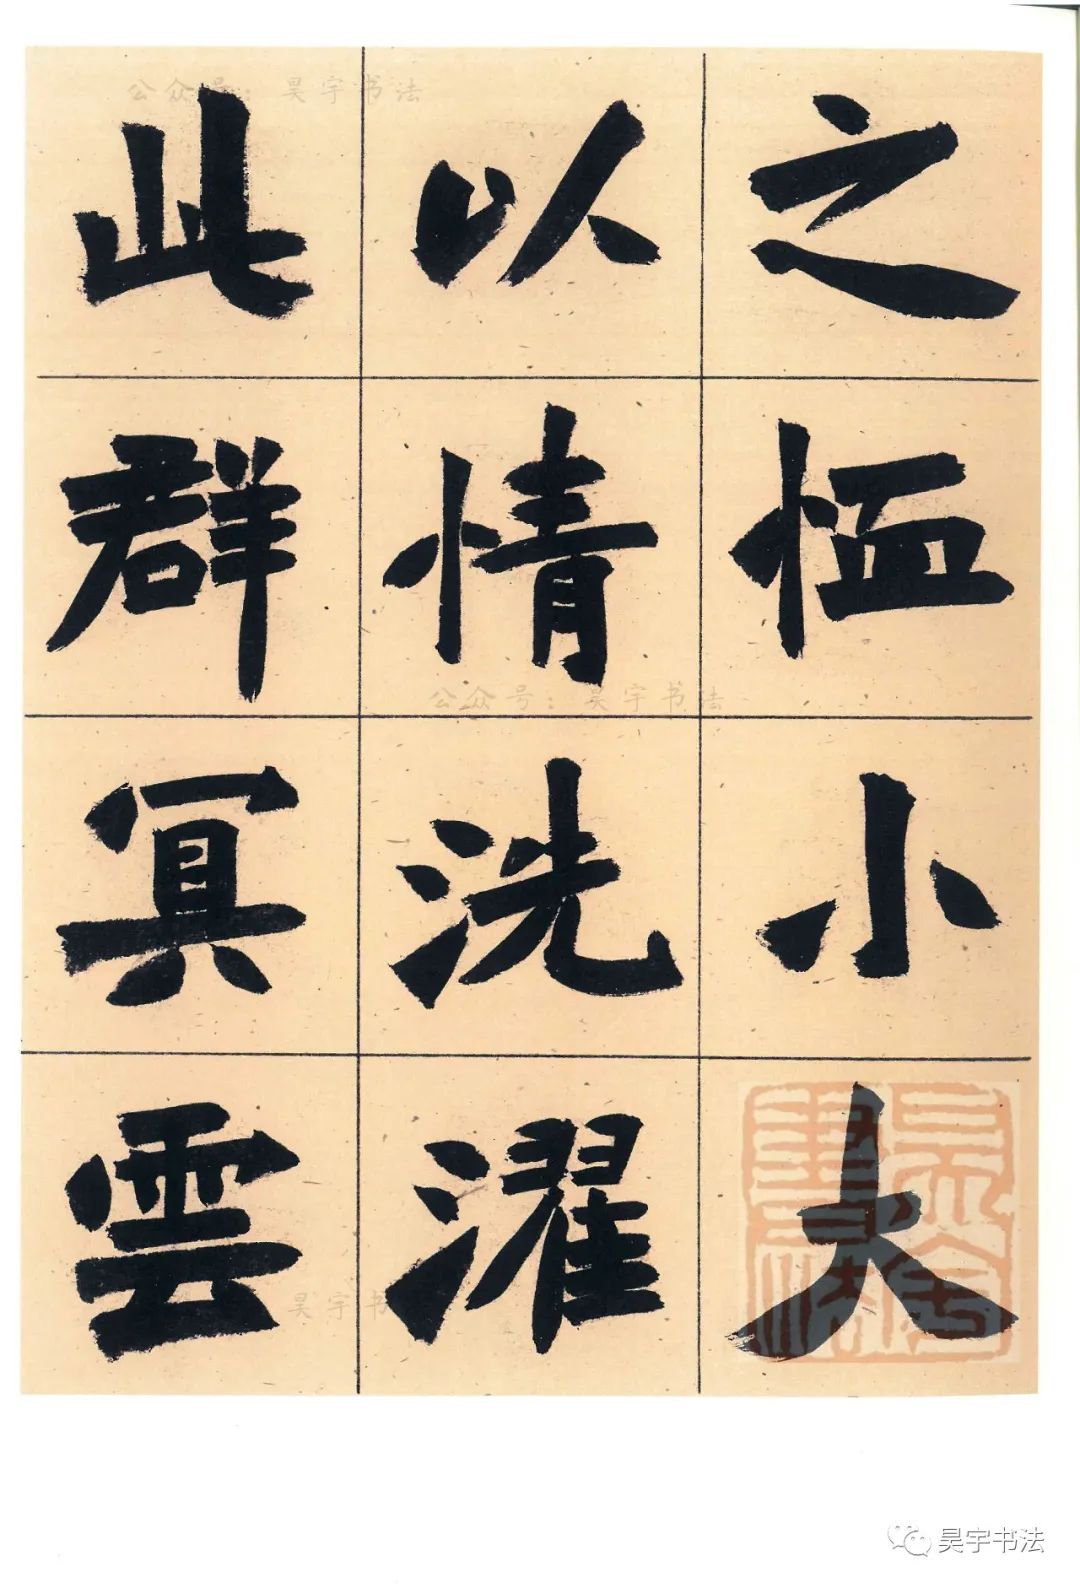 之恤小大
以情洗濯
此群冥雲
公众号：昊宇书法
公众号：昊宇书法
昊宇书
昊宇书法